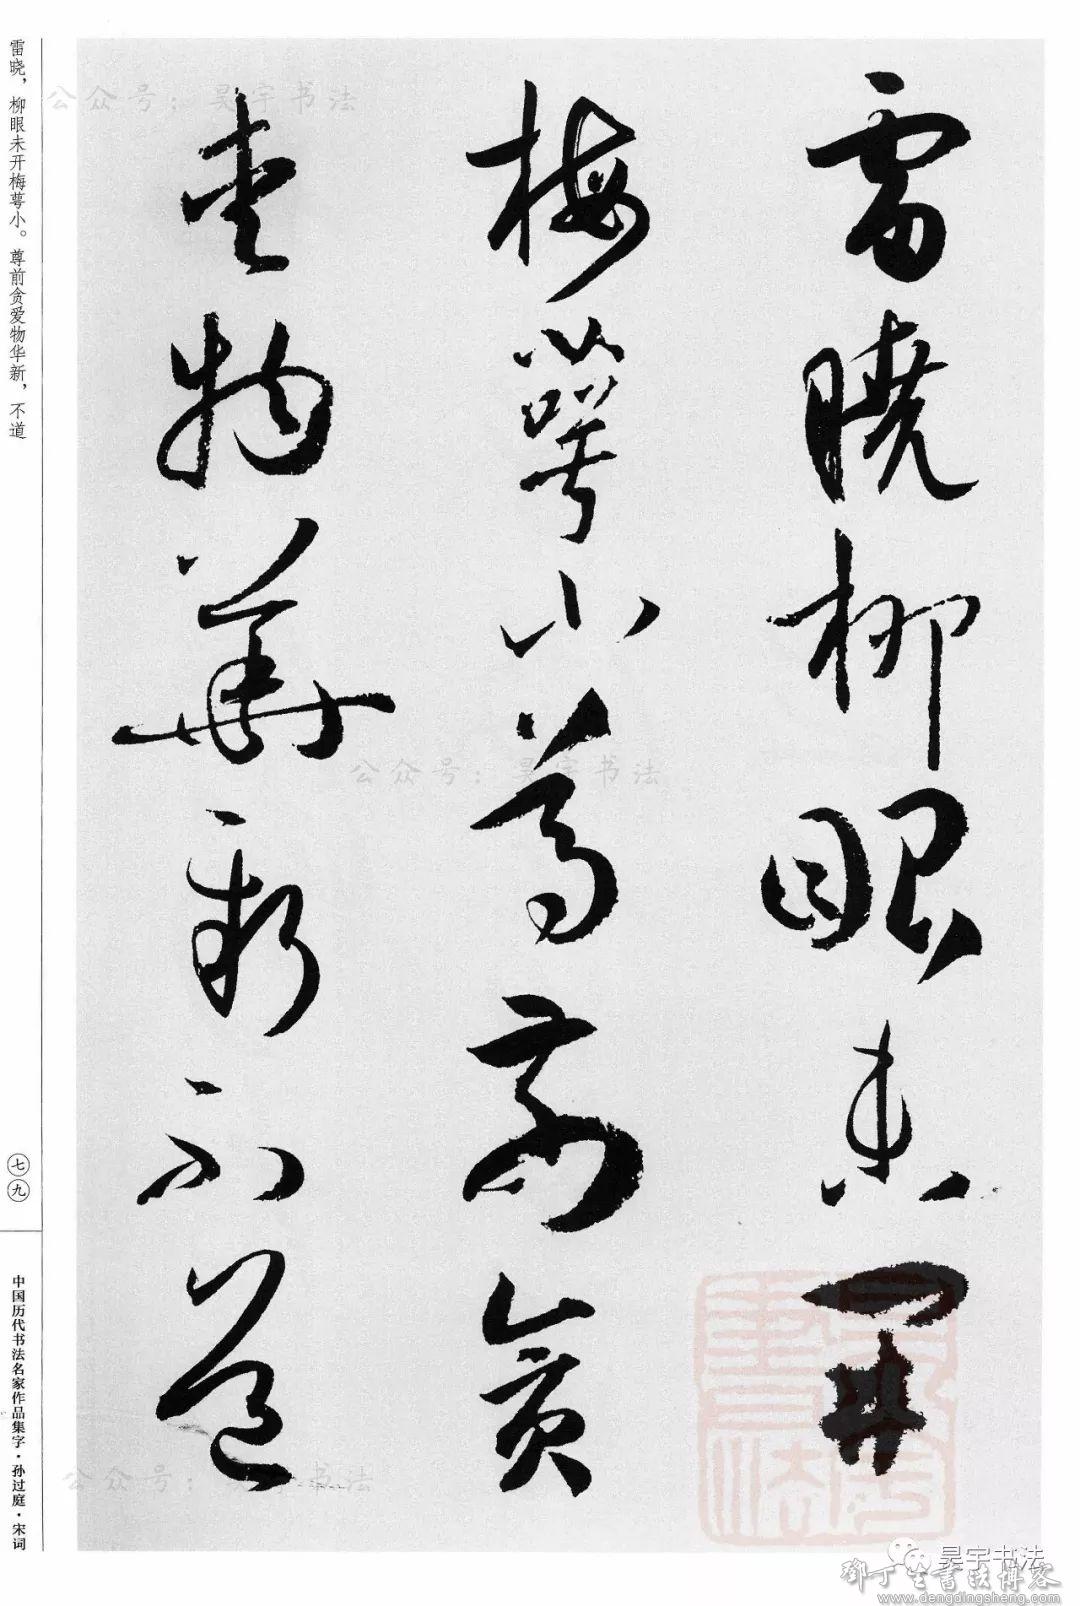 雷曉柳眼未開
梅萼小尊前貪
愛物華新不道
雷晓，柳眼未开梅萼小。尊前贪爱物华新，不道
七九
中国历代书法名家作品集字·孙过庭·宋词
公众号：昊宇书法
公众号：昊宇书法
公众号：昊宇书法
昊宇书法
鄧丁生書法博客
www.dengdingsheng.com